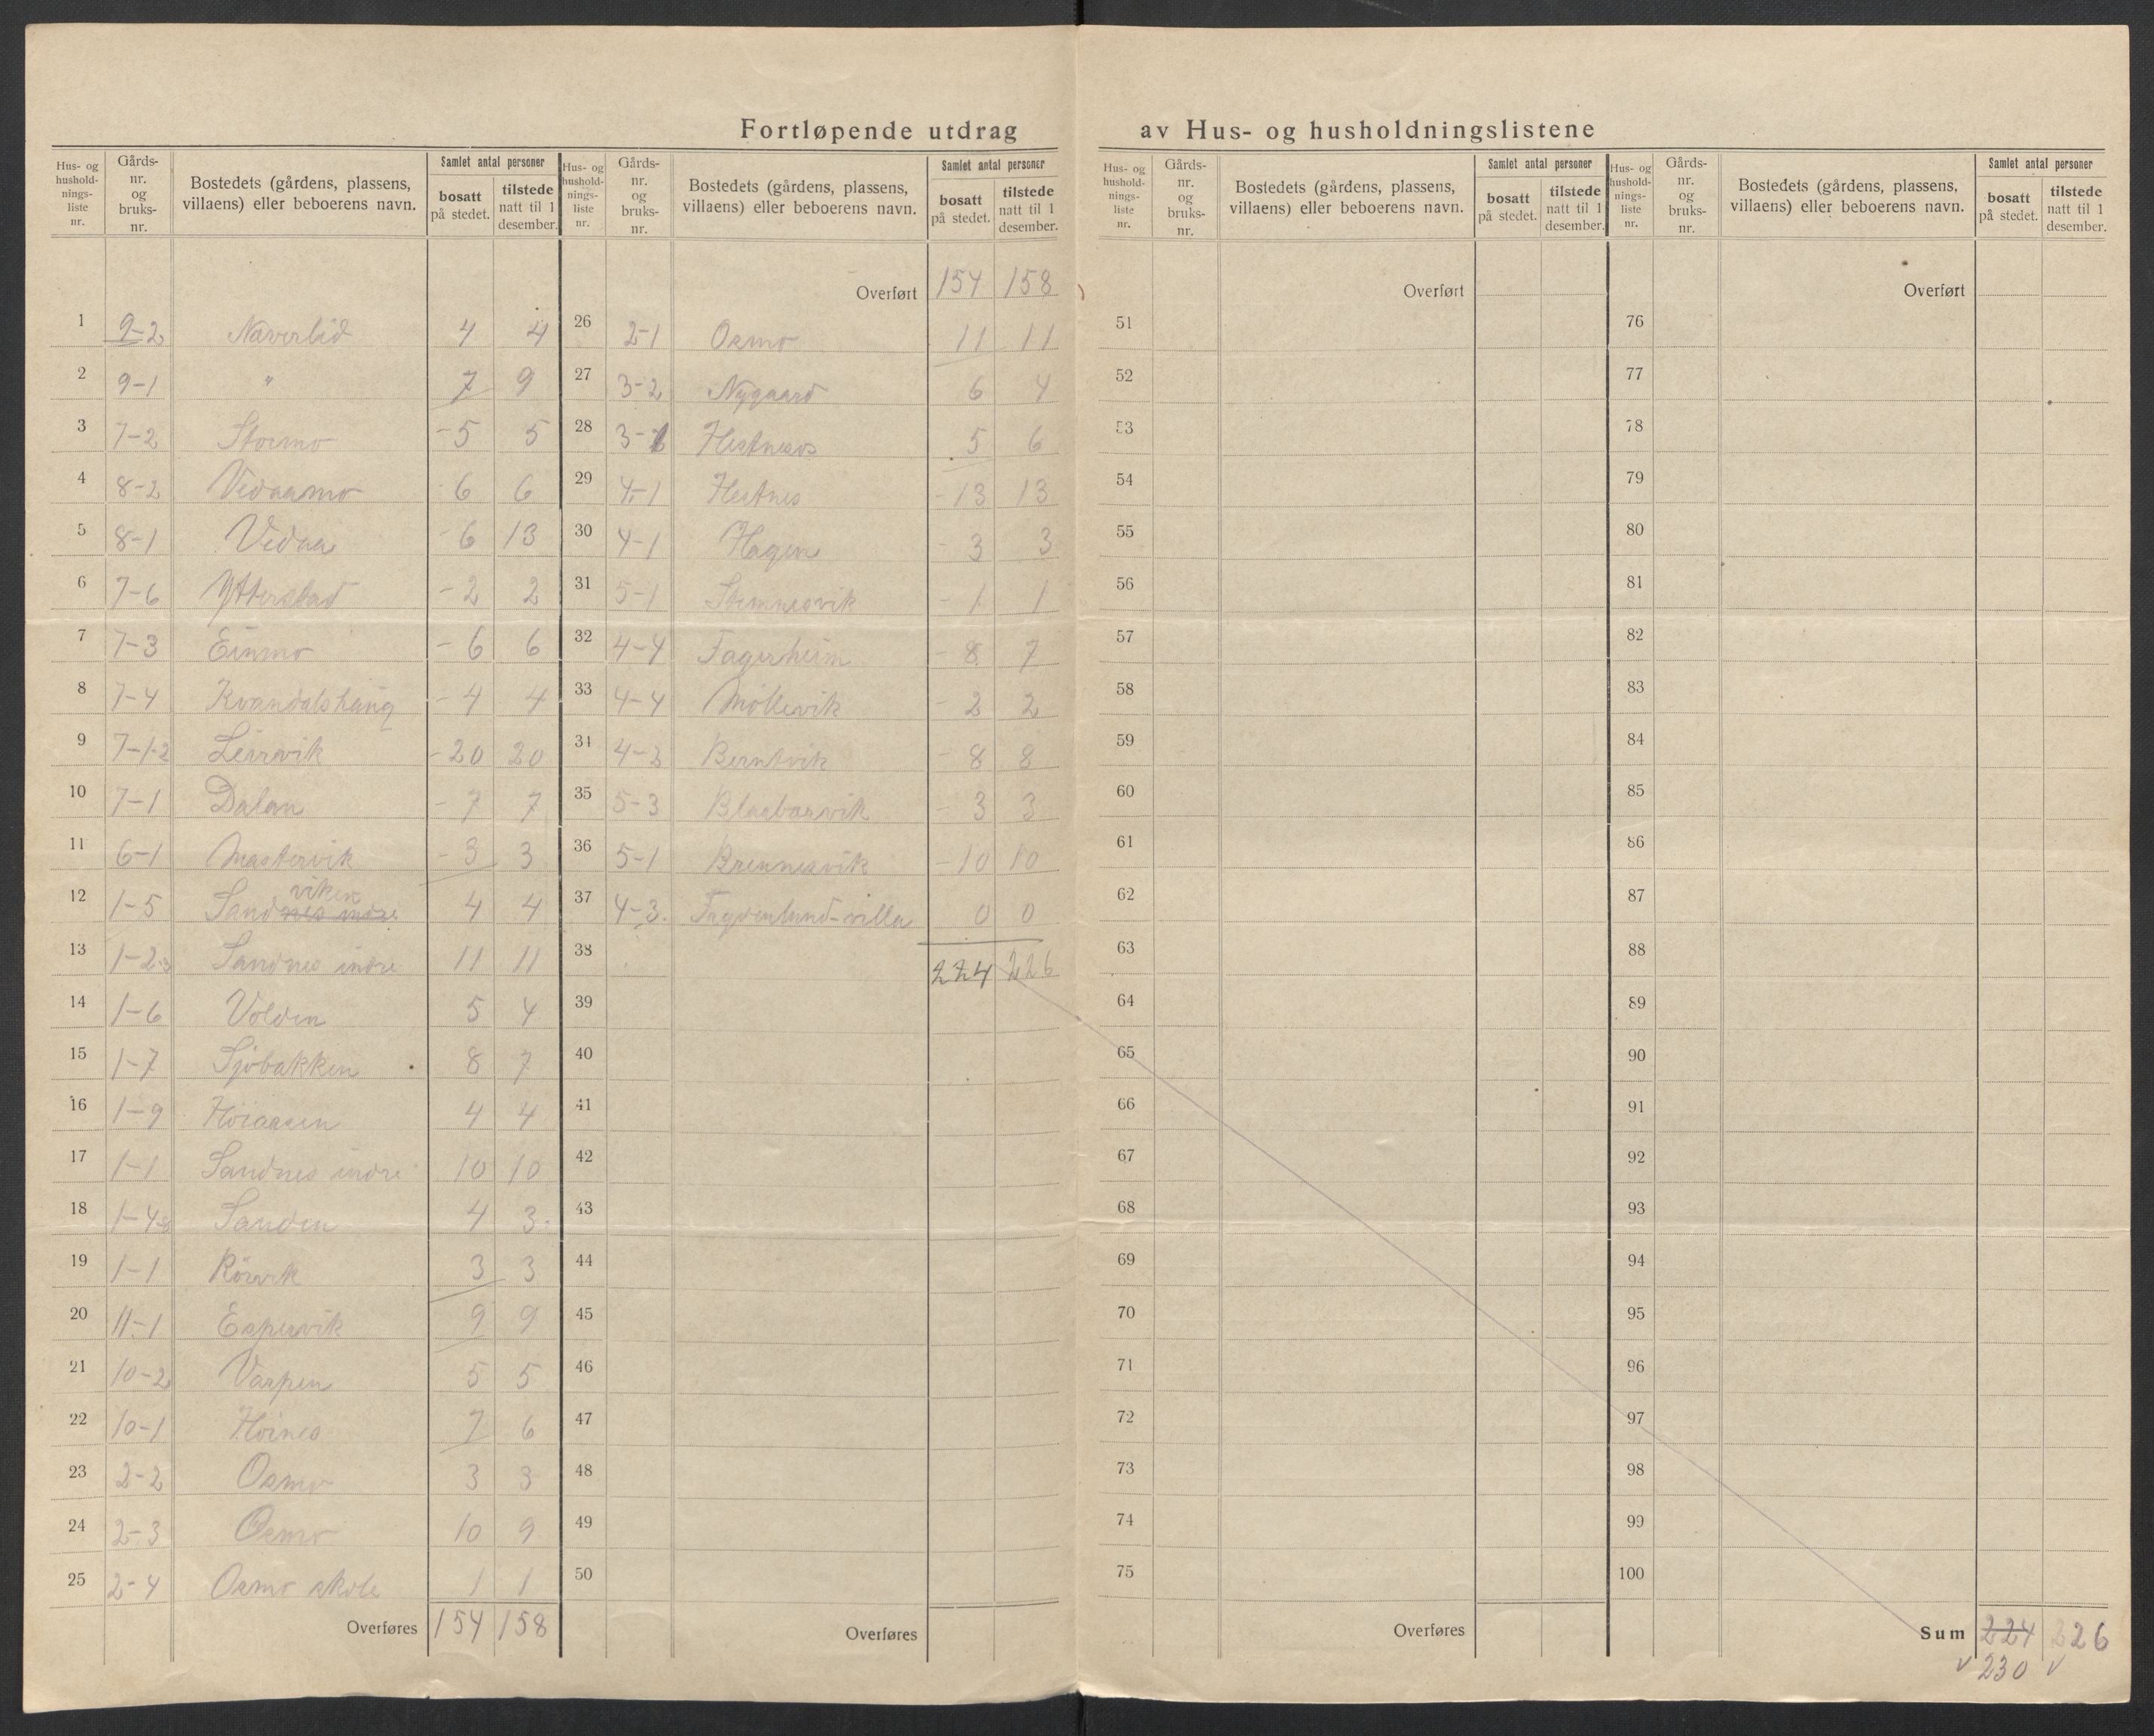 Fortløpende utdrag av Hus- og husholdningslistene
Hus- og hushold-nings-liste nr. | Gårds-nr. og bruks-nr. | Bostedets (gårdens, plassens, villaens) eller beboerens navn. | Samlet antal personer | bosatt på stedet. | tilstede natt til 1 desember.
1 9-2 Naverlid 4 4
2 9-1 " 7 9
3 7-2 Stormo -5 5
4 8-2 Vedaamo -6 6
5 8-1 Vedaa -6 13
6 7-6 Ytterstad -2 2
7 7-3 Einmo -6 6
8 7-4 Kvandalshaug -4 4
9 7-1-2 Leirvik -20 20
10 7-1 Dalan -7 7
11 6-1 Mastervik -3 3
12 1-5 Sandnes indre viken 4 4
13 1-2-3 Sandnes indre 11 11
14 1-6 Volden 5 4
15 1-7 Sjøbakken 8 7
16 1-9 Høiaasen 4 4
17 1-1 Sandnes indre 10 10
18 1-4-8 Sanden 4 3
19 1-1 Rörvik 3 3
20 11-1 Espervik 9 9
21 10-2 Varpen 5 5
22 10-1 Höines 7 6
23 2-2 Osmo 3 3
24 2-3 Osmo 10 9
25 2-4 Osmo skole 1 1
Overføres 154 158
Hus- og hushold-nings-liste nr. | Gårds-nr. og bruks-nr. | Bostedets (gårdens, plassens, villaens) eller beboerens navn. | Samlet antal personer | bosatt på stedet. | tilstede natt til 1 desember.
Overført 154 158
26 2-1 Osmo 11 11
27 3-2 Nygaard 6 4
28 3-1 Hestnesos 5 6
29 4-1 Hestnes -13 13
30 4-1 Hagen -3 3
31 5-1 Stemnesvik -1 1
32 4-4 Fagerheim -8 7
33 4-4 Möllevik -2 2
34 4-2 Berntvik -8 8
35 5-3 Blaabærvik -3 3
36 5-1 Brennesvik -10 10
37 4-3 Fagerlund-villa 0 0
38 224 226
39
40
41
42
43
44
45
46
47
48
49
50
Overføres
Hus- og hushold-nings-liste nr. | Gårds-nr. og bruks-nr. | Bostedets (gårdens, plassens, villaens) eller beboerens navn. | Samlet antal personer | bosatt på stedet. | tilstede natt til 1 desember.
Overført
51
52
53
54
55
56
57
58
59
60
61
62
63
64
65
66
67
68
69
70
71
72
73
74
75
Overføres
Hus- og hushold-nings-liste nr. | Gårds-nr. og bruks-nr. | Bostedets (gårdens, plassens, villaens) eller beboerens navn. | Samlet antal personer | bosatt på stedet. | tilstede natt til 1 desember.
Overført
76
77
78
79
80
81
82
83
84
85
86
87
88
89
90
91
92
93
94
95
96
97
98
99
100
Sum 224 226
✓ 230 ✓